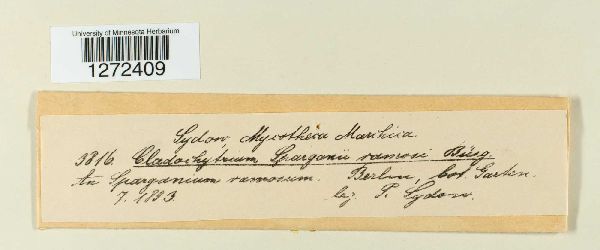 University of Minnesota Herbarium
1272409
Sydow, Mycotheca Marchica.
3816. Cladochytrium Sparganii ramosi Büsg.
In Sparganium ramosum. Berlin, bot. Garten.
7. 1893. leg. P. Sydow.